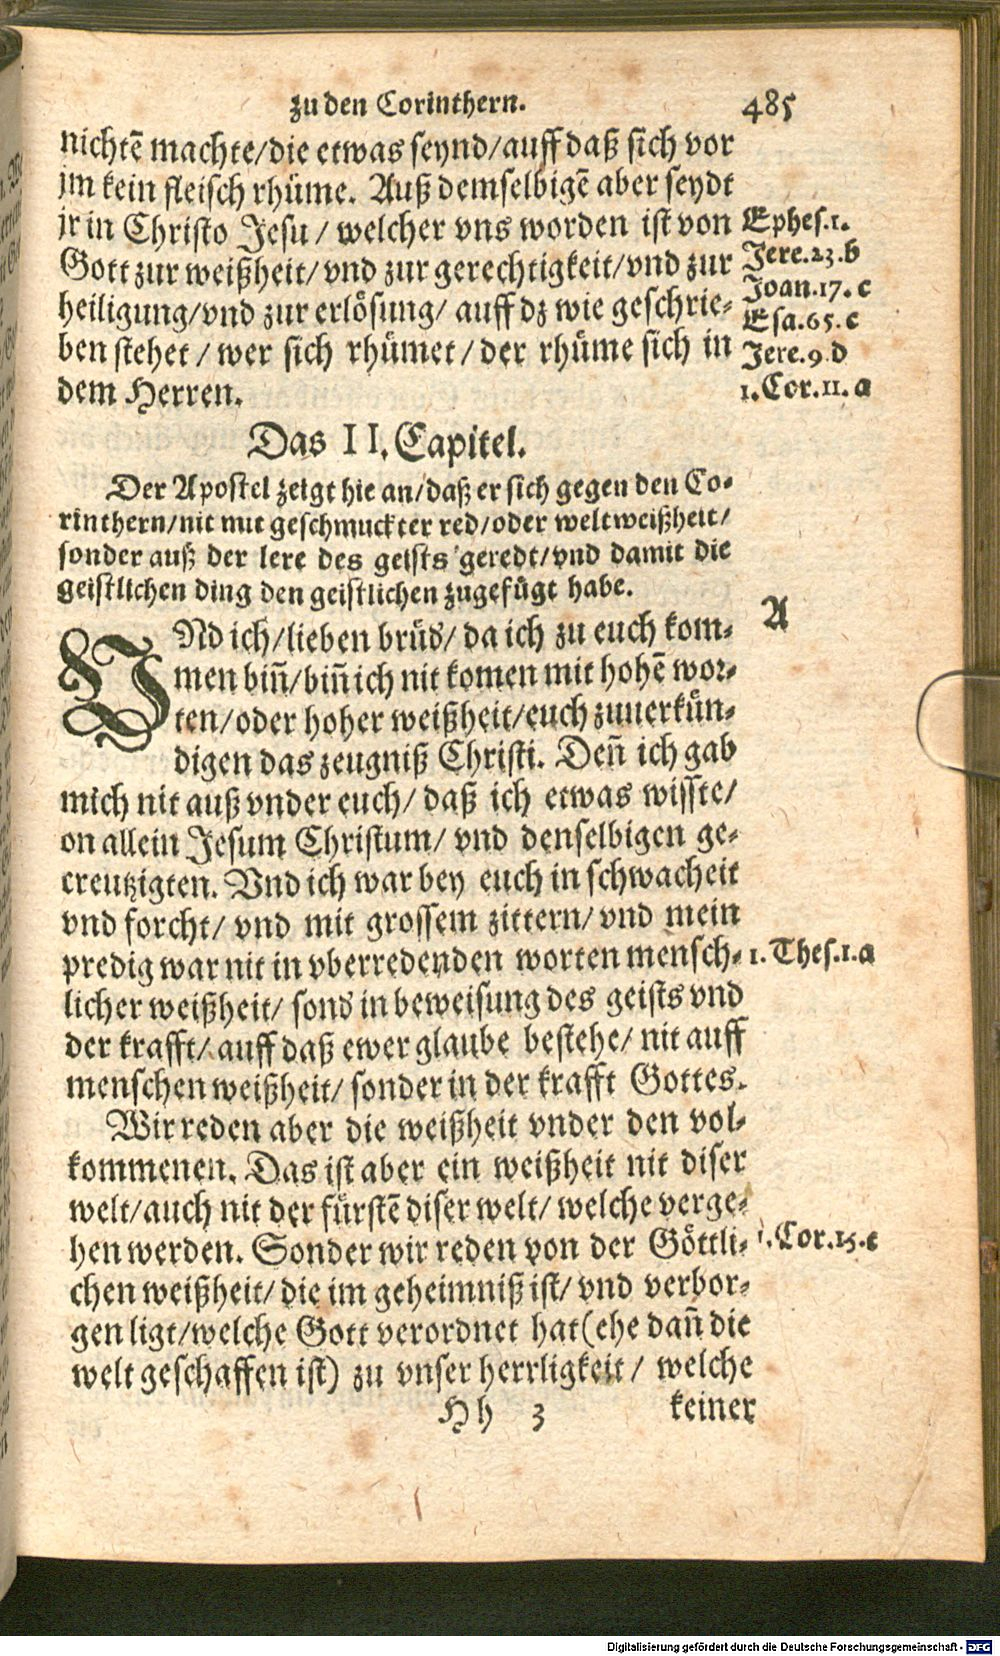 zu den Corinthern. 485
nichtē machte/die etwas seynd/auff daß sich vor
jm kein fleisch rhüme. Auß demselbigē aber seydt
jr in Christo Jesu / welcher vns worden ist von
Gott zur weißheit/ vnd zur gerechtigkeit/vnd zur
heiligung/vnd zur erlösung/ auff dz wie geschrie-
ben stehet / wer sich rhümet / der rhüme sich in
dem Herren.
Ephes.1.
Jere.23.b
Joan.17.c
Esa.65.c
Jere.9.d
1.Cor.11.a
Das II. Capitel.
Der Apostel zeigt hie an/daß er sich gegen den Co-
rinthern/nit mit geschmuckter red/oder weltweißheit/
sonder auß der lere des geists geredt/vnd damit die
geistlichen ding den geistlichen zugefügt habe.
A
VNd ich/lieben brüd/ da ich zu euch kom-
men biñ/biñ ich nit komen mit hohē wor-
ten/oder hoher weißheit/euch zuuerkün-
digen das zeugniß Christi. Deñ ich gab
mich nit auß vnder euch/ daß ich etwas wisste/
on allein Jesum Christum/ vnd denselbigen ge-
creutzigten. Vnd ich war bey euch in schwacheit
vnd forcht/ vnd mit grossem zittern/ vnd mein
predig war nit in vberredenden worten mensch-
1. Thes.1.a
licher weißheit/ sond in beweisung des geists vnd
der krafft/ auff daß ewer glaube bestehe/ nit auff
menschen weißheit/ sonder in der krafft Gottes.
Wir reden aber die weißheit vnder den vol-
kommenen. Das ist aber ein weißheit nit diser
welt/auch nit der fürstē diser welt/ welche verge-
hen werden. Sonder wir reden von der Göttli-
1.Cor.15.c
chen weißheit/ die im geheimniß ist/ vnd verbor-
gen ligt/welche Gott verordnet hat(ehe dañ die
welt geschaffen ist) zu vnser herrligkeit / welche
Hh 3 keiner
Digitalisierung gefördert durch die Deutsche Forschungsgemeinschaft - DFG